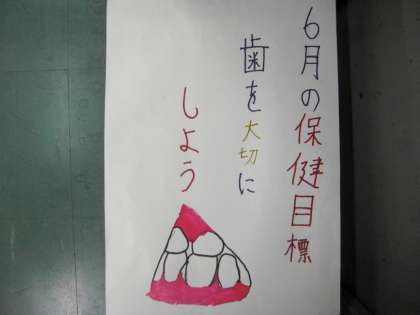 6月の保健目標
歯を大切に
しよう